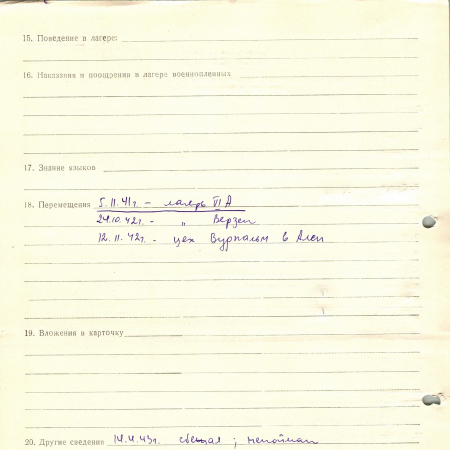 15. Поведение в лагере:
16. Наказания и поощрения в лагере военнопленных
17. Знание языков
18. Перемещения 5.11.41г. – лагерь VI А
24.10.42г. – " Верзен
12.11.42г. – цех Вурпальм в Ален
19. Вложения в карточку
20. Другие сведения 14.4.43г. сбежал; непойман